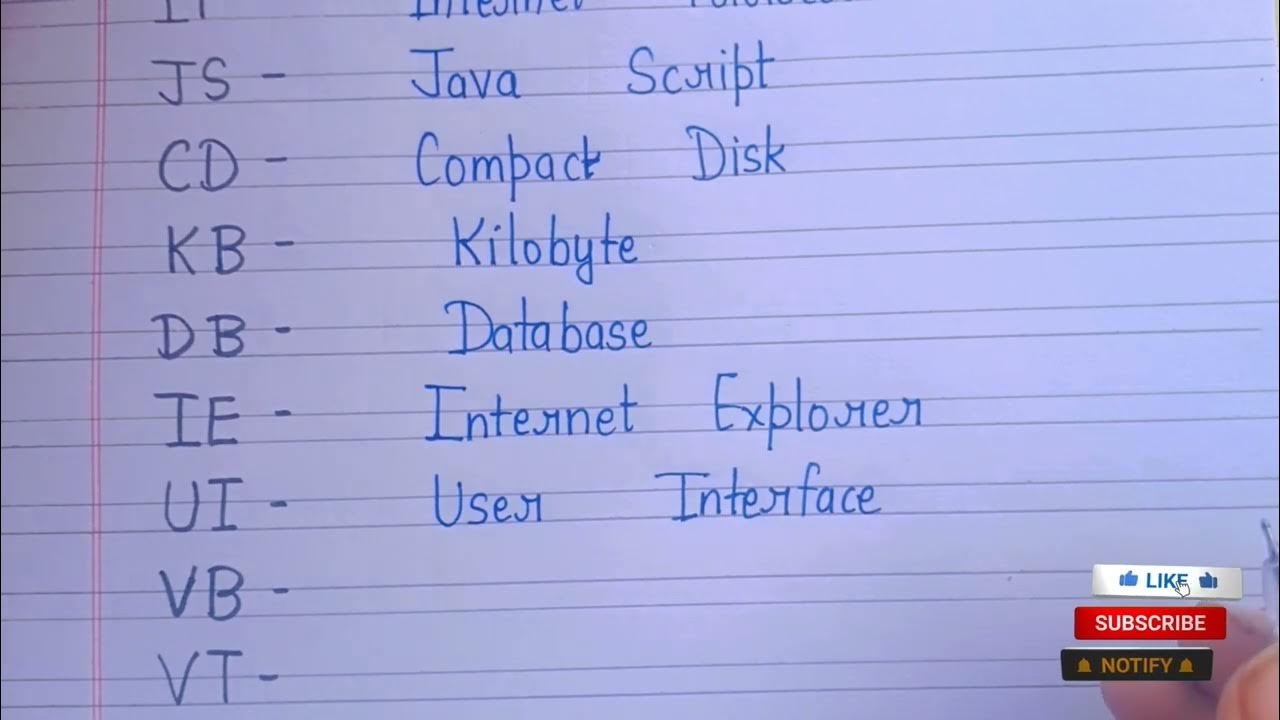 JS - Java Script
CD - Compact Disk
KB - Kilobyte
DB - Database
IE - Internet Explorer
UI - User Interface
VB -
VT -
LIKE
SUBSCRIBE
NOTIFY